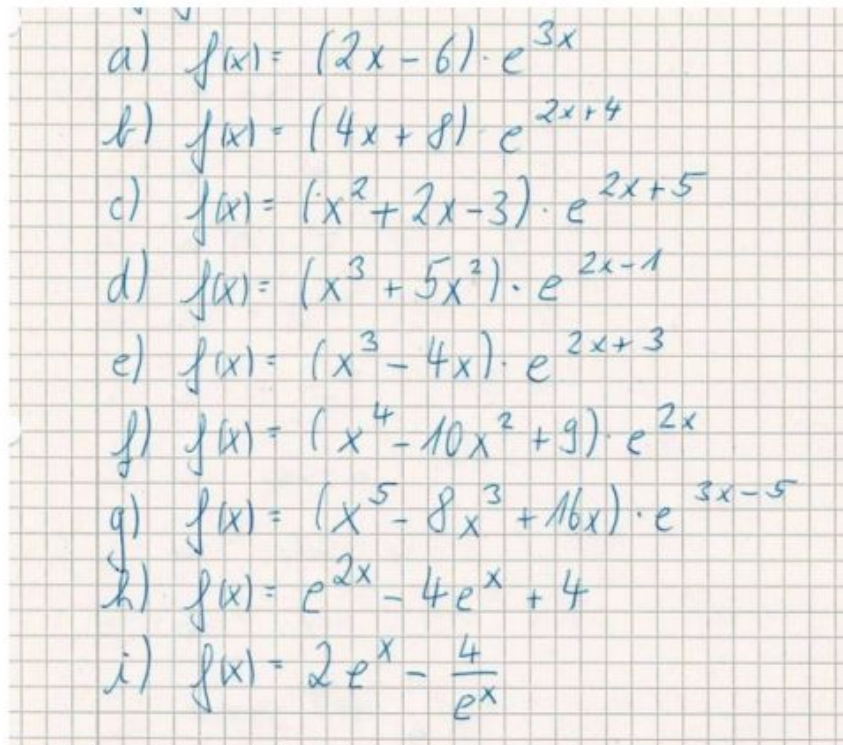 a) f(x) = (2x - 6) · e^{3x}
b) f(x) = (4x + 8) · e^{2x+4}
c) f(x) = (x^2 + 2x - 3) · e^{2x+5}
d) f(x) = (x^3 + 5x^2) · e^{2x-1}
e) f(x) = (x^3 - 4x) · e^{2x+3}
f) f(x) = (x^4 - 10x^2 + 9) · e^{2x}
g) f(x) = (x^5 - 8x^3 + 16x) · e^{3x-5}
h) f(x) = e^{2x} - 4e^x + 4
i) f(x) = 2e^x - \frac{4}{e^x}